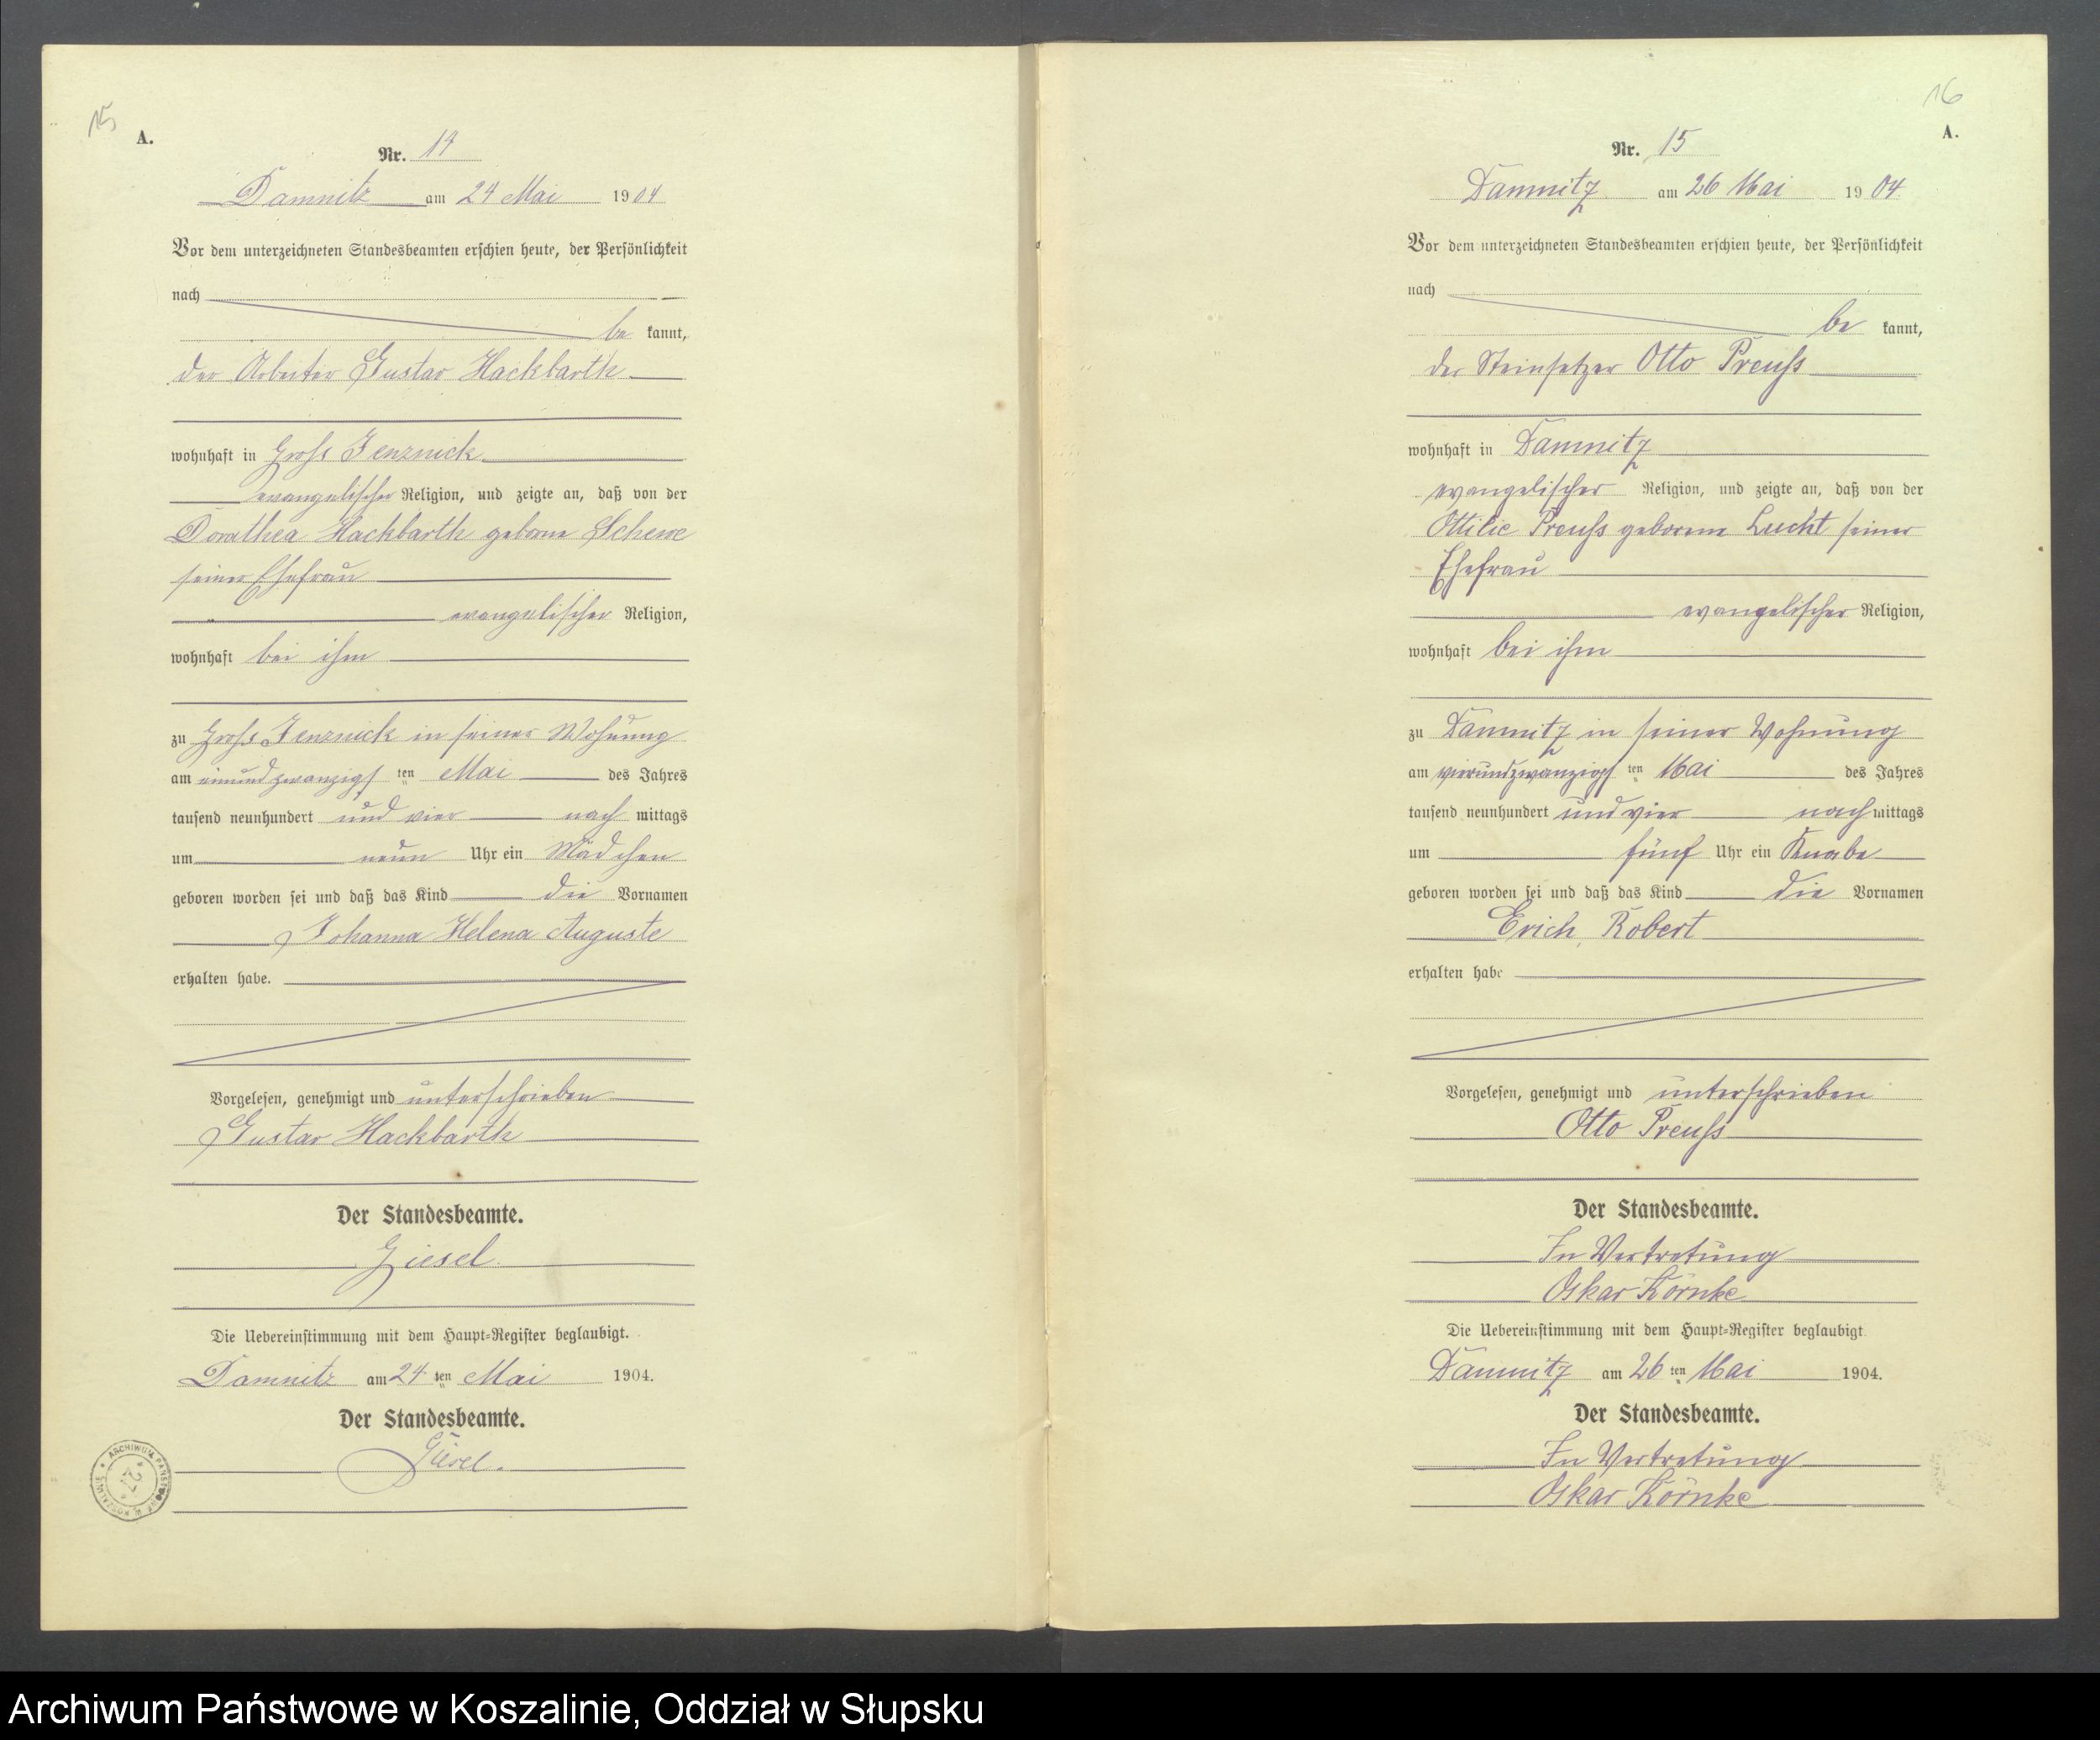 15
A.
Nr. 14
Damnitz am 24 Mai 1904
Vor dem unterzeichneten Standesbeamten erschien heute, der Persönlichkeit
nach
be kannt,
der Arbeiter Gustav Hackbarth
wohnhaft in Gross Jenznick
evangelischer Religion, und zeigte an, daß von der
Dorathea Hackbarth geborne Schewe
seiner Ehefrau
evangelischer Religion,
wohnhaft bei ihm
zu Gross Jenznick in seiner Wohnung
am einundzwanzigs ten Mai des Jahres
tausend neunhundert und vier nach mittags
um neun Uhr ein Mädchen
geboren worden sei und daß das Kind die Vornamen
Johanna Helena Auguste
erhalten habe.
Vorgelesen, genehmigt und unterschrieben
Gustav Hackbarth
Der Standesbeamte.
Giesel
Die Uebereinstimmung mit dem Haupt-Register beglaubigt.
Damnitz am 24 ten Mai 1904.
Der Standesbeamte.
Giesel.
ARCHIWUM PAŃSTWOWE W KOSZALINIE
* 27 *
16
A.
Nr. 15
Damnitz am 26 Mai 1904
Vor dem unterzeichneten Standesbeamten erschien heute, der Persönlichkeit
nach
be kannt,
der Steinsetzer Otto Preuss
wohnhaft in Damnitz
evangelischer Religion, und zeigte an, daß von der
Ottilie Preuss geborene Lucht seiner
Ehefrau
evangelischer Religion,
wohnhaft bei ihm
zu Damnitz in seiner Wohnung
am vierundzwanzigs ten Mai des Jahres
tausend neunhundert und vier nach mittags
um fünf Uhr ein Knabe
geboren worden sei und daß das Kind die Vornamen
Erich Robert
erhalten habe
Vorgelesen, genehmigt und unterschrieben
Otto Preuss
Der Standesbeamte.
In Vertretung
Oskar Körnke
Die Uebereinstimmung mit dem Haupt-Register beglaubigt.
Damnitz am 26 ten Mai 1904.
Der Standesbeamte.
In Vertretung
Oskar Körnke
Archiwum Państwowe w Koszalinie, Oddział w Słupsku